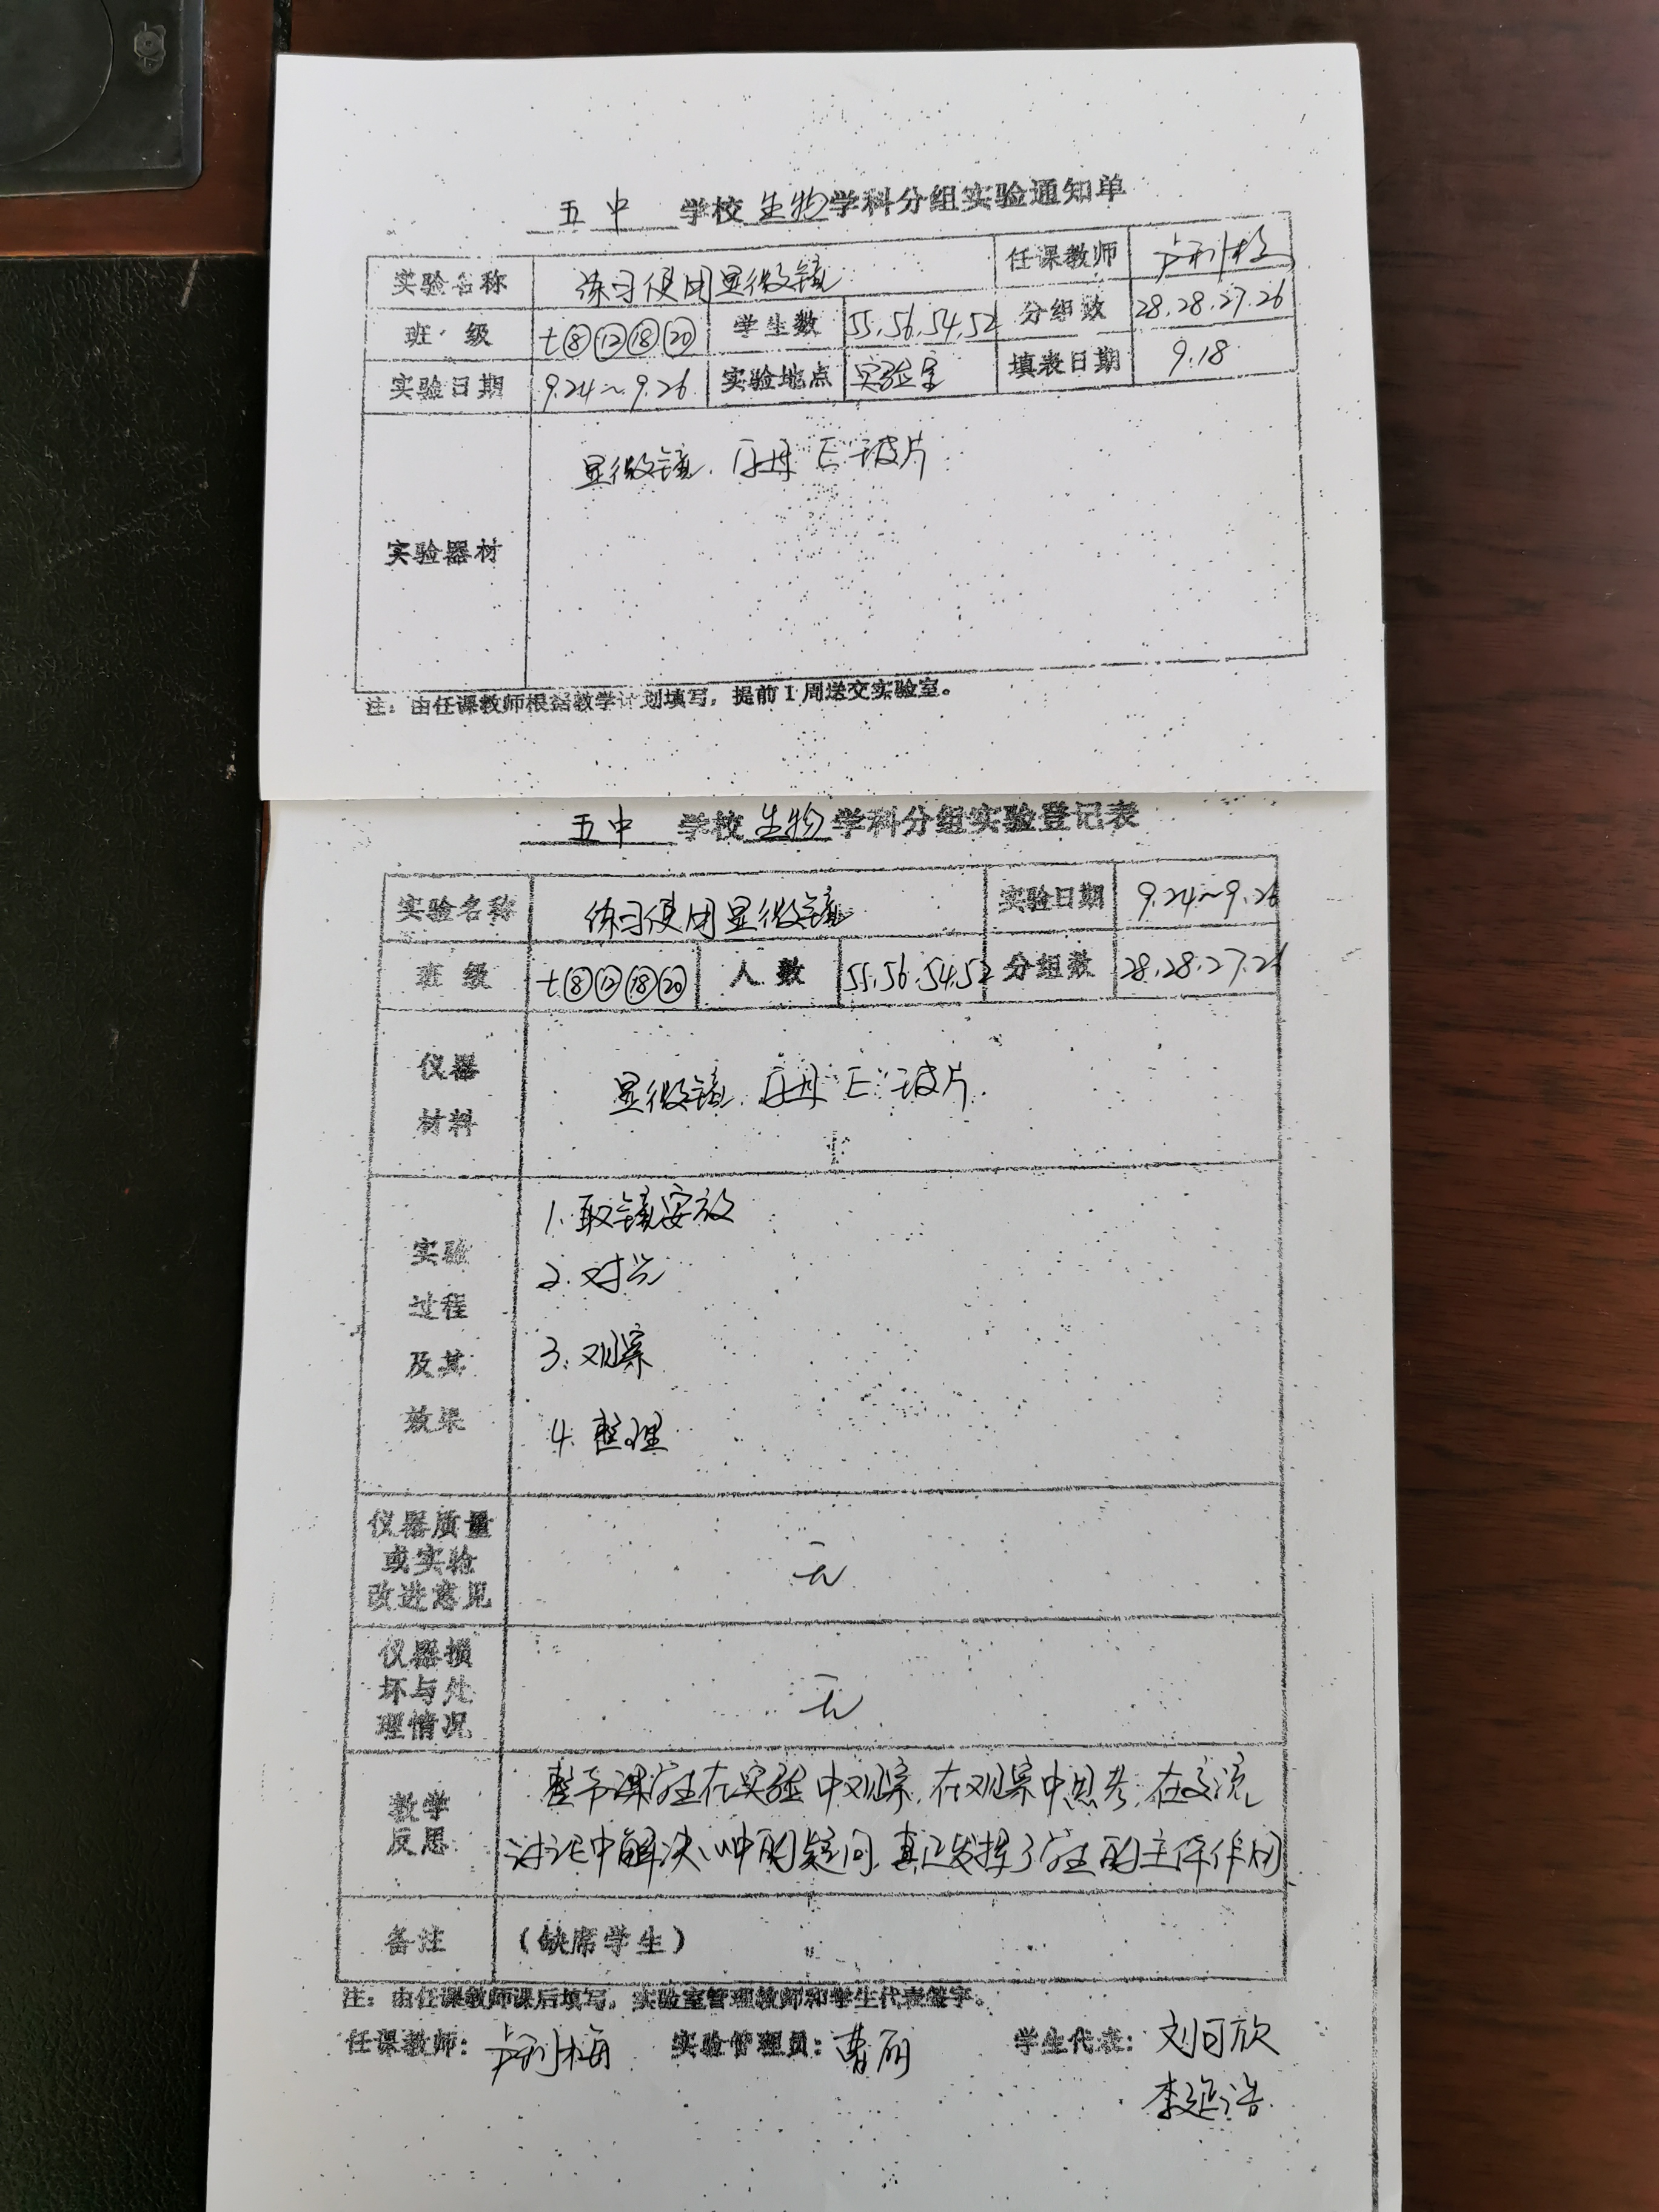 五中 学校 生物 学科分组实验通知单
实验名称 练习使用显微镜 任课教师 卢利梅
班级 七⑧⑫⑱⑳ 学生数 55.56.54.52 分组数 28.28.27.26
实验日期 9.24~9.26 实验地点 实验室 填表日期 9.18
实验器材 显微镜.字母E玻片.
注：由任课教师根据教学计划填写，提前1周送交实验室。
五中 学校 生物 学科分组实验登记表
实验名称 练习使用显微镜 实验日期 9.24~9.26
班级 七⑧⑫⑱⑳ 人数 55.56.54.52 分组数 28.28.27.26
仪器
材料
显微镜.字母E玻片.
实验
过程
及其
效果
1.取镜安放
2.对光
3.观察
4.整理
仪器质量
或实验
改进意见
无
仪器损
坏与处
理情况
无
教学
反思
整节课学生在实验中观察.在观察中思考.在交流
讨论中解决心中的疑问.真正发挥了学生的主体作用
备注 （缺席学生）
注：由任课教师课后填写，实验室管理教师和学生代表签字。
任课教师：卢利梅 实验管理员：曹丽 学生代表：刘可欣
李延浩